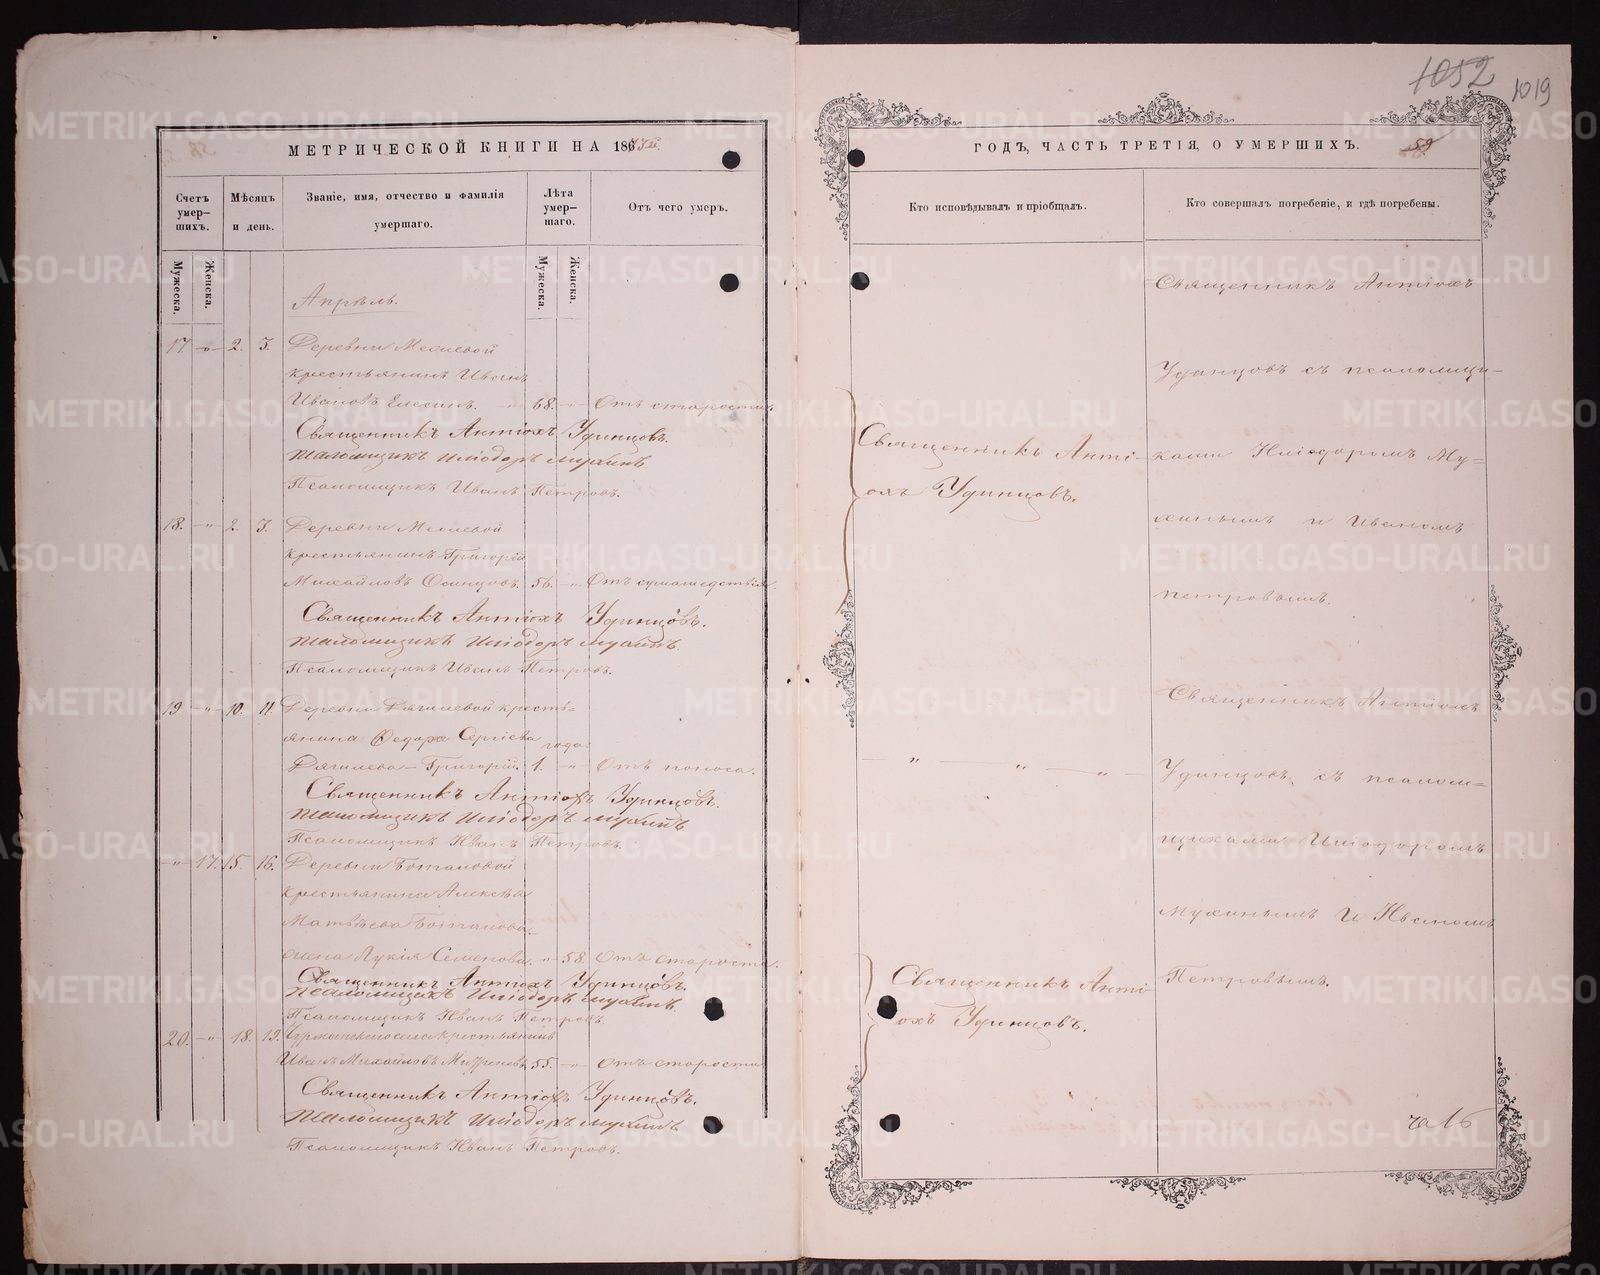 МЕТРИЧЕСКОЙ КНИГИ НА 186
Счетъ умер-шихъ.
Мѣсяцъ и день.
Званіе, имя, отчество и фамилія умершаго.
Лѣта умер-шаго.
Отъ чего умеръ.
Мужеска.
Женска.
Мужеска.
Женска.
Апрѣль.
17 2. 3. Деревни
крестьянинъ Иванъ
Ивановъ 68. Отъ старости.
Священникъ Антіохъ Удинцовъ.
Псаломщикъ Иліодоръ Мухинъ
Псаломщикъ Иванъ Петровъ.
18. " 2. 3. Деревни
крестьянинъ Григорій
Михайловъ Осинцовъ. 56. " Отъ сумашедствія.
Священникъ Антіохъ Удинцовъ.
Псаломщикъ Иліодоръ Мухинъ.
Псаломщикъ Иванъ Петровъ.
19. " 10. 11. Деревни Дягилевой кресть=
янина Ѳедора Сергіева
года
Дягилева – Григорій. 1. " Отъ поноса.
Священникъ Антіохъ Удинцовъ.
Псаломщикъ Иліодоръ Мухинъ
Псаломщикъ Иванъ Петровъ.
" 17. 15. 16. Деревни Боталовой
крестьянина Алексѣя
Матвѣева Боталова
жена Лукія Семенова. " 58. Отъ старости.
Священникъ Антіохъ Удинцовъ.
Псаломщикъ Иліодоръ Мухинъ.
Псаломщикъ Иванъ Петровъ.
20. " 18. 19. крестьянинъ
Иванъ Михайловъ 55. " Отъ старости
Священникъ Антіохъ Удинцовъ.
Псаломщикъ Иліодоръ Мухинъ
Псаломщикъ Иванъ Петровъ.
1052
1019
ГОДЪ, ЧАСТЬ ТРЕТІЯ, О УМЕРШИХЪ.
59
Кто исповѣдывалъ и пріобщалъ.
Кто совершалъ погребеніе, и гдѣ погребены.
Священникъ Анті-
охъ Удинцовъ.
" " "
Священникъ Анті-
охъ Удинцовъ.
Священникъ Антіохъ
Удинцовъ съ псаломщи-
ками Иліодоромъ Му=
хинымъ и Иваномъ
Петровымъ.
Священникъ Антіохъ
Удинцовъ съ псалом=
щиками Иліодоромъ
Мухинымъ и Иваномъ
Петровымъ.
METRIKI.GASO-URAL.RU